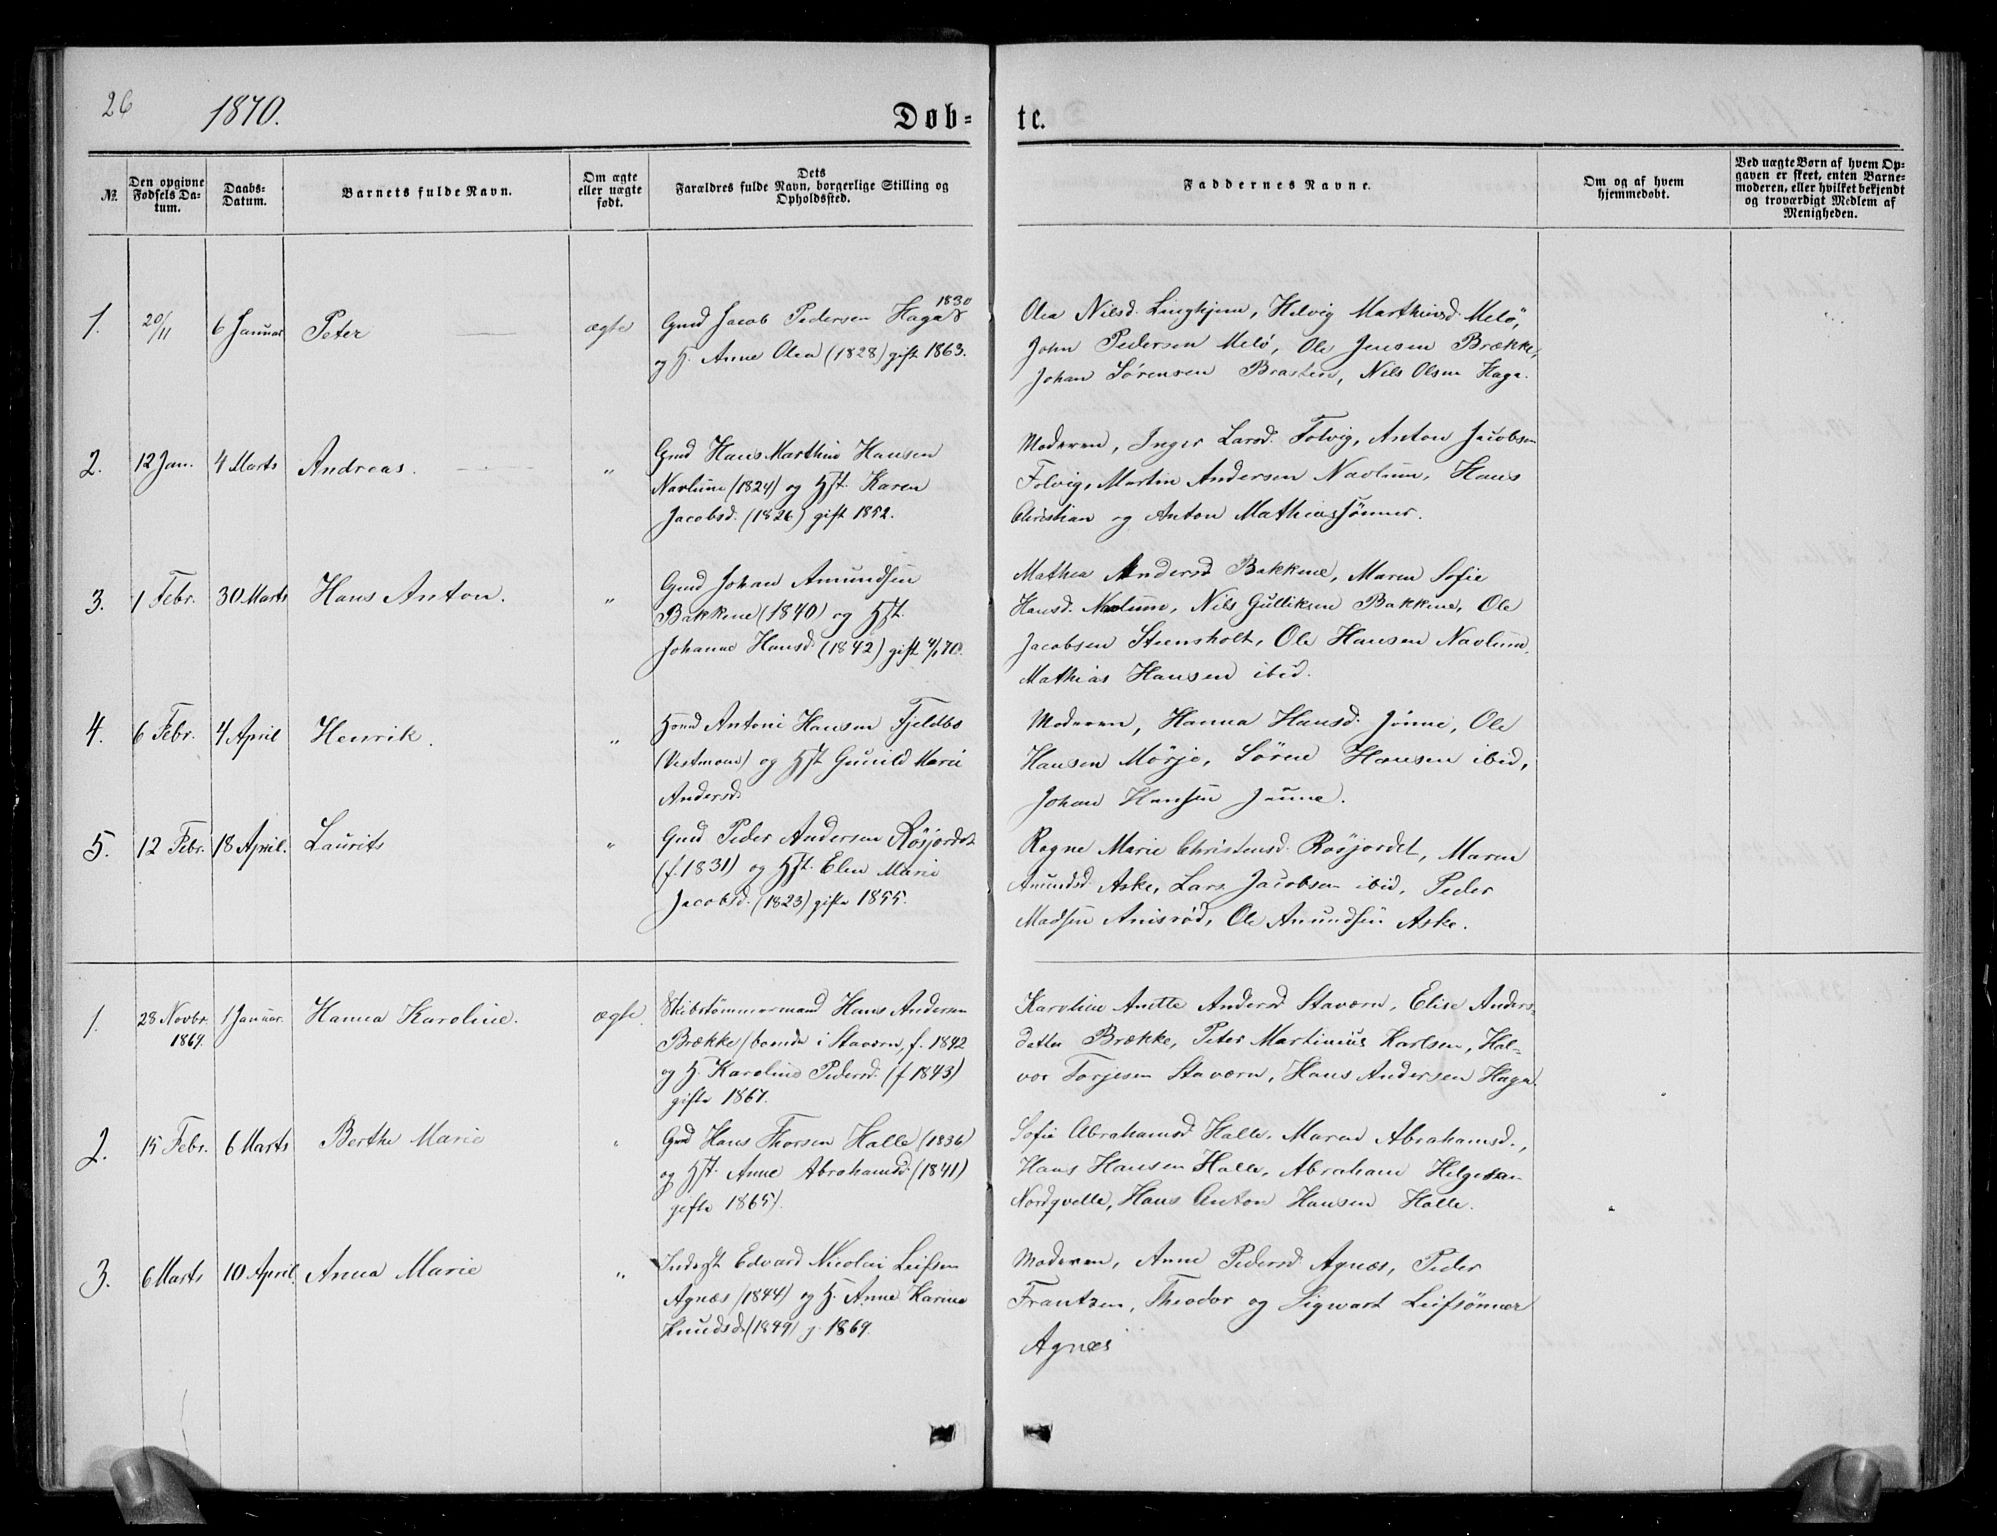 26
1870.
Døb-
te.
№
Den opgivne Fødsels Da-tum.
Daabs-Datum.
Barnets fulde Navn.
Om ægte eller uægte født.
Dets Forældres fulde Navn, borgerlige Stilling og Opholdssted.
Faddernes Navne.
Om og af hvem hjemmedøbt.
Ved uægte Børn af hvem Op-gaven er skeet, enten Barne-moderen, eller hvilket bekjendt og troværdigt Medlem af Menigheden.
1. 20/11 6 Januar Peter ægte
Gmd Jacob Pedersen Haga 1830
og H. Anne Olea (1828) gift 1863.
Olea Nilsd. Linghjem, Helvig Marthinsd. Melø,
John Pedersen Melø, Ole Jensen Brække,
Johan Sørensen Brasten, Nils Olsen Haga.
2. 12 Jan. 4 Marts Andreas. "
Gmd Hans Marthin Hansen
Navlum (1824) og Hst. Karen
Jacobsd. (1826) gift 1852.
Moderen, Inger Larsd. Folvig, Anton Jacobsen
Folvig, Martin Andersen Navlum, Hans
Christian og Anton Mathiassønner.
3. 1 Febr. 30 Marts Hans Anton. "
Gmd Johan Amundsen
Bakkene (1840) og Hst.
Johanne Hansd. (1842) gift 4/1 70.
Mathea Andersd Bakkene, Maren Sofie
Hansd. Navlum, Nils Gulliksen Bakkene, Ole
Jacobsen Steensholt, Ole Hansen Navlum,
Mathias Hansen ibid.
4. 6 Febr. 4 April Henrik. "
Hmd Antoni Hansen Fjeldbo
(Vestmoen) og Hst Gunild Marie
Andersd.
Moderen, Hanna Hansd. Jønne, Ole
Hansen Mørje, Søren Hansen ibid,
Johan Hansen Jønne.
5. 12 Febr. 18 April. Laurits "
Gmd Peder Andersen Røsjordet
(f. 1831) og Hst. Elen Marie
Jacobsd. (1823) gifte 1855.
Ragne Marie Christensd. Røsjordet, Maren
Amundsd Aske, Lars Jacobsen ibid, Peder
Madsen Anisrød, Ole Amundsen Aske.
1. 28 Novbr. 1869. 1 Januar. Hanna Karoline. ægte.
Skibstømmermand Hans Andersen
Brække (boende i Stavern, f. 1842
og H. Karoline Pedersd. (f 1843)
gifte 1867.
Karoline Anette Andersd Stavern, Elise Anders-
datter Brække, Peter Martinius Karlsen, Hal-
vor Torjesen Stavern, Hans Andersen Haga.
2. 15 Febr. 6 Marts Berthe Marie "
Gmd Hans Thorsen Halle (1836)
og Hst. Anne Abrahamsd. (1841)
gifte 1865).
Sofie Abrahamsd Halle, Maren Abrahamsd.,
Hans Hansen Halle, Abraham Helgesen
Nordqvelle, Hans Anton Hansen Halle.
3. 6 Marts 10 April. Anna Marie "
Inderst Edvard Nicolai Leifsen
Agnæs (1844) og H. Anne Karine
Knudsd. (1849) g. 1869.
Moderen, Anne Pedersd Agnæs, Peder
Frantzen, Theodor og Sigwart Leifsønner
Agnæs